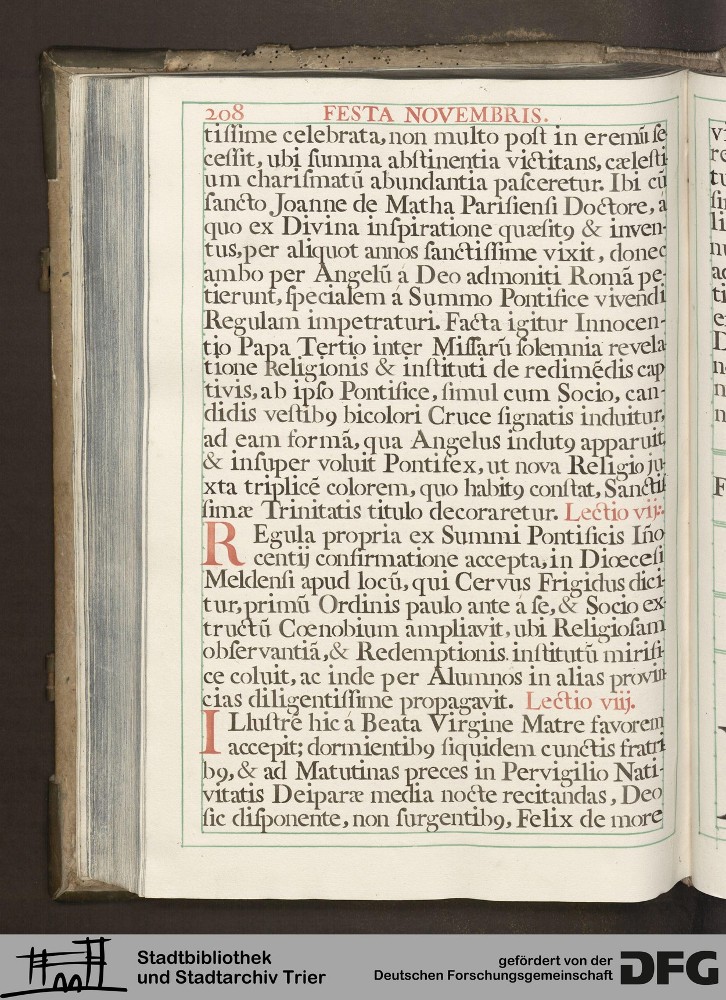 208 FESTA NOVEMBRIS.
tiſſime celebrata, non multo poſt in eremũ ſe
ceſſit, ubi ſumma abſtinentia victitans, cæleſti-
um chariſmatũ abundantia paſceretur. Ibi cũ
ſancto Joanne de Matha Pariſienſi Doctore, á
quo ex Divina inſpiratione quæſitꝯ & inven-
tus, per aliquot annos ſanctiſſime vixit, donec
ambo per Angelũ á Deo admoniti Romã pe-
tierunt, ſpecialem á Summo Pontifice vivendi
Regulam impetraturi. Facta igitur Innocen-
tio Papa Tertio inter Miſſarũ ſolemnia revela
tione Religionis & inſtituti de redimẽdis cap
tivis, ab ipſo Pontifice, ſimul cum Socio, can-
didis veſtibꝯ bicolori Cruce ſignatis induitur,
ad eam formã, qua Angelus indutꝯ apparuit,
& inſuper voluit Pontifex, ut nova Religio ju-
xta triplicẽ colorem, quo habitꝯ conſtat, Sanctiſ
ſimæ Trinitatis titulo decoraretur. Lectio vij.
REgula propria ex Summi Pontificis Iño
centij confirmatione accepta, in Diœceſi
Meldenſi apud locũ, qui Cervus Frigidus dici-
tur, primũ Ordinis paulo ante á ſe, & Socio ex-
tructũ Cœnobium ampliavit, ubi Religioſam
obſervantiã, & Redemptionis inſtitutũ mirifi-
ce coluit, ac inde per Alumnos in alias provin
cias diligentiſſime propagavit. Lectio viij.
ILluſtrẽ hic á Beata Virgine Matre favorem
accepit; dormientibꝯ ſiquidem cunctis fratri
bꝯ, & ad Matutinas preces in Pervigilio Nati-
vitatis Deiparæ media nocte recitandas, Deo
ſic diſponente, non ſurgentibꝯ, Felix de more
Stadtbibliothek
und Stadtarchiv Trier
gefördert von der
Deutschen Forschungsgemeinschaft
DFG